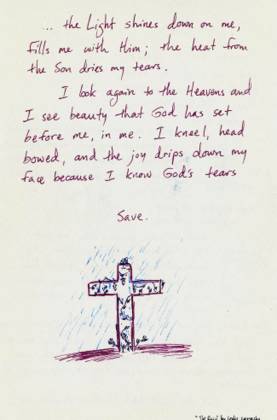 ... the Light shines down on me,
fills me with Him; the heat from
the Son dries my tears.
I look again to the Heavens and
I see beauty that God has set
before me, in me. I kneel, head
bowed, and the joy drips down my
face because I know God's tears
Save.